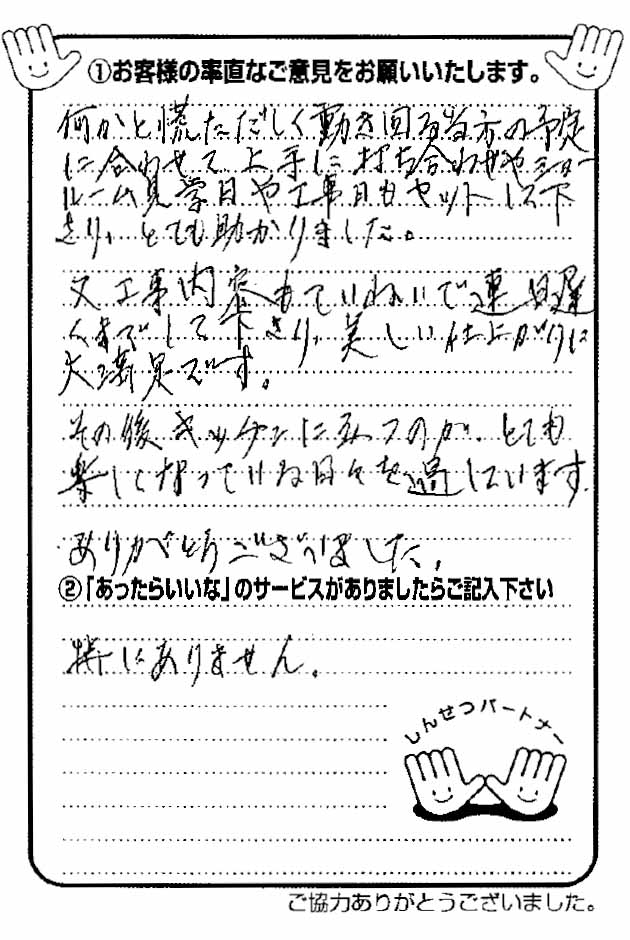 ①お客様の率直なご意見をお願いいたします。
何かと慌ただしく動き回る当方の予定
に合わせて上手に打ち合わせやショー
ルーム見学日や工事日もセットして下
さり、とても助かりました。
又工事内容もていねいで連日遅
くまでして下さり、美しい仕上がりに
大満足です。
その後キッチンに立つのが、とても
楽しくなっている日々を過しています。
ありがとうございました。
②「あったらいいな」のサービスがありましたらご記入下さい
特にありません。
しんせつパートナー
ご協力ありがとうございました。